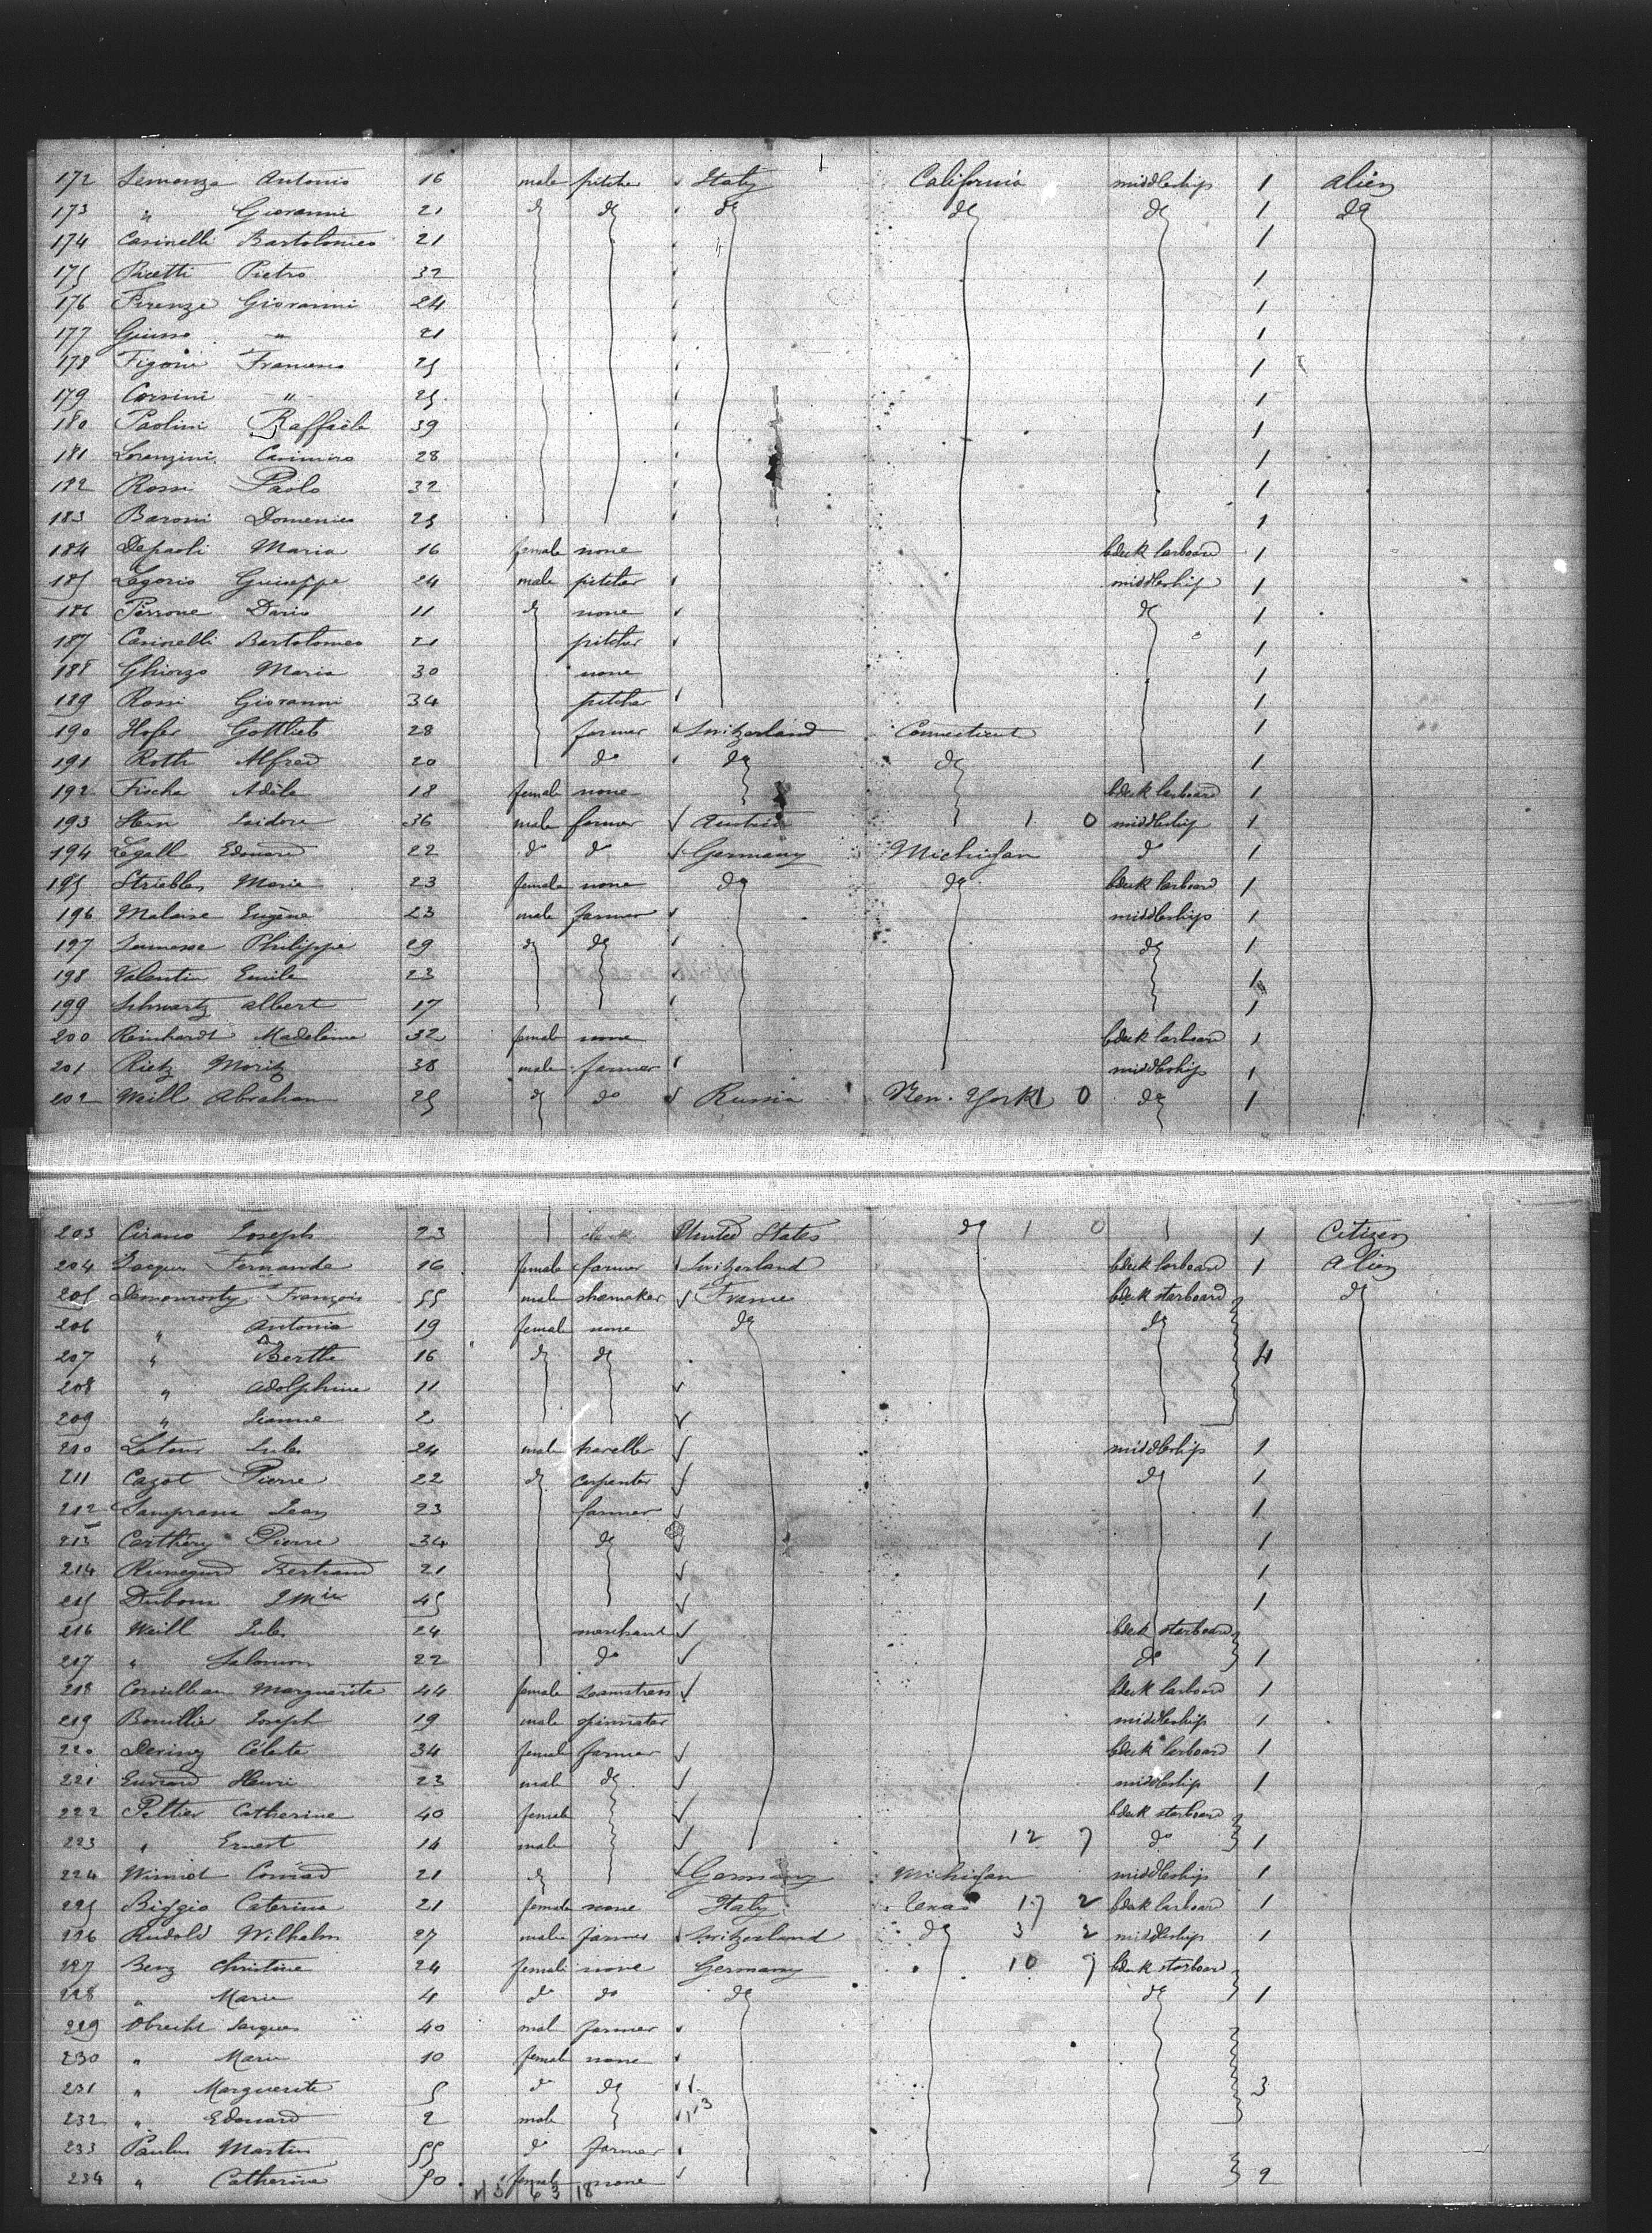 172 Semenza Antonio 16 male pitcher Italy California middleship 1 alien
173 " Giovanni 21 do do do do do 1 do
174 Casinelli Bartolomeo 21 1
175 Picetti Pietro 32 1
176 Firenze Giovanni 24 1
177 Giusso " 21 1
178 Figone Francesco 25 1
179 Corsini " 25 1
180 Paolini Raffaele 39 1
181 Lorenzini Casimiro 28 1
182 Rossi Paolo 32 1
183 Baroni Domenico 25 1
184 Depaoli Maria 16 female none bdeck larboard 1
185 Lagorio Guiseppe 24 male pitcher middleship 1
186 Perrone Dario 11 do none do 1
187 Casinelli Bartolomeo 21 pitcher 1
188 Ghiorzo Maria 30 none 1
189 Rossi Giovanni 34 pitcher 1
190 Hofer Gottlieb 28 farmer Switzerland Connecticut 1
191 Roth Alfred 20 do do do 1
192 Fischer Adèle 18 female none bdeck larboard 1
193 Stern Isidore 36 male farmer Austria 1 0 middleship 1
194 Legall Edouard 22 do do Germany Michigan do 1
195 Striebler Marie 23 female none do do bdeck larboard 1
196 Malaise Eugène 23 male farmer middleships 1
197 Philippe 29 do do do 1
198 Valentin Emile 23 1
199 Schwartz albert 17 1
200 Reinhardt Madeleine 32 female none bdeck larboard 1
201 Rietz Moritz 38 male farmer middleship 1
202 Weill Abraham 25 do do Russia New-York 1 0 do 1
203 Cirano Joseph 23 clerk United States do 1 0 1 Citizen
204 Jacques Fernande 16 female farmer Switzerland bdeck larboard 1 Alien
205 François 55 male shoemaker France bdeck starboard do
206 " Antonia 19 female none do do
207 " Berthe 16 do do 4
208 " Adolphine 11
209 " Jeanne 2
210 Latour Jules 24 male traveller middleship 1
211 Cazot Pierre 22 do carpenter do 1
212 Jean 23 farmer 1
213 Carthery Pierre 34 do 1
214 Bertrand 21 1
215 45 1
216 Weill Jules 24 merchant bdeck starboard
217 " Salomon 22 do do 1
218 Marguerite 44 female seamstress bdeck larboard 1
219 Bouillie Joseph 19 male spinnster middleship 1
220 Céleste 34 female farmer bdeck larboard 1
221 Euvrard Henri 23 male do middleship 1
222 Peltier Catherine 40 female bdeck starboard
223 " Ernest 14 male 12 7 do 1
224 Conrad 21 do Germany Michigan middleship 1
225 Biggio Caterina 21 female none Italy Texas 17 2 bdeck larboard 1
226 Rudold Wilhelm 27 male farmer Switzerland do 3 2 middleship 1
227 Benz Christine 24 female none Germany 10 7 bdeck starboard
228 " Marie 4 do do do do 1
229 Obrecht Jacques 40 male farmer
230 " Marie 10 female none
231 " Marguerite 5 do do 3
232 " Edouard 2 male
233 Paulus Martin 55 do farmer
234 " Catherine 50 female none 2
63 18